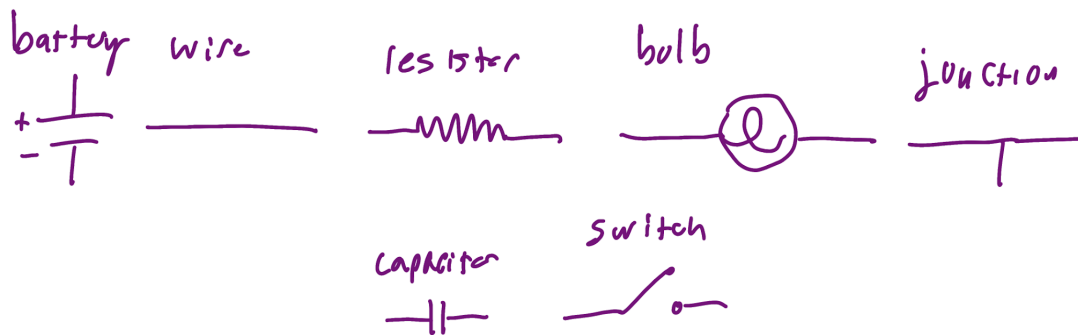 battery wire resister bulb junction
+
-
capacitor switch